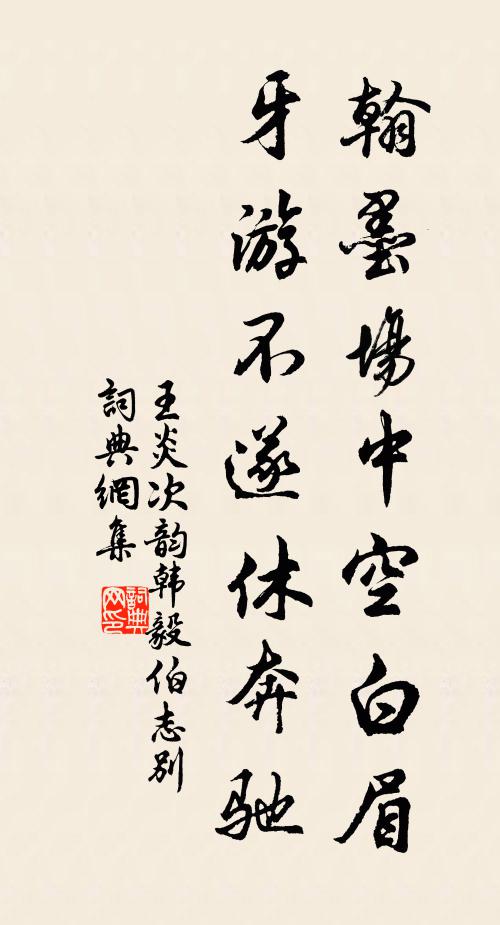 翰墨場中空白眉
牙游不遂休奔馳
王炎次韵韩毅伯志别
詞典網集
詞典网印